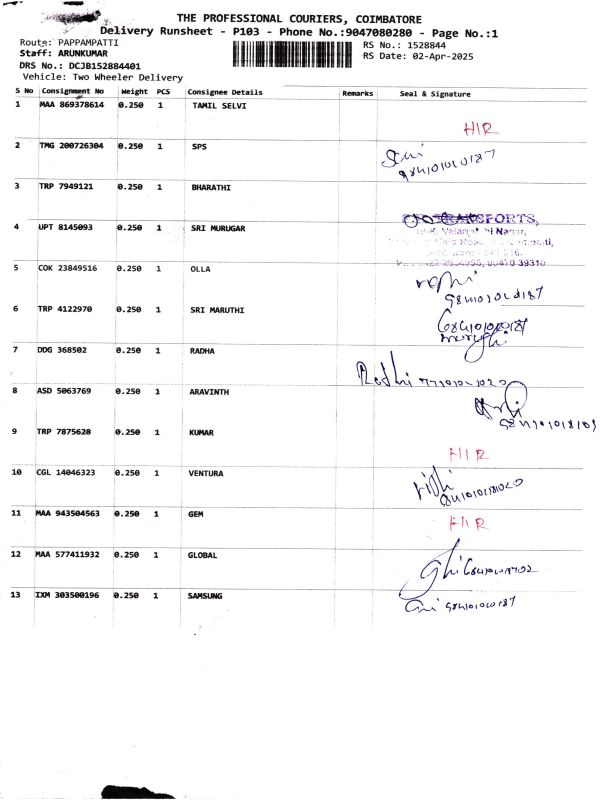 THE PROFESSIONAL COURIERS, COIMBATORE
Delivery Runsheet - P103 - Phone No.:9047080280 - Page No.:1
Route: PAPPAMPATTI
RS No.: 1528844
Staff: ARUNKUMAR
RS Date: 02-Apr-2025
DRS No.: DCJB152884401
Vehicle: Two Wheeler Delivery
S No Consignment No Weight PCS Consignee Details Remarks Seal & Signature
1 MAA 869378614 0.250 1 TAMIL SELVI
HIR
2 TMG 200726304 0.250 1 SPS
3 TRP 7949121 0.250 1 BHARATHI
4 UPT 8145093 0.250 1 SRI MURUGAR
5 COK 23849516 0.250 1 OLLA
6 TRP 4122970 0.250 1 SRI MARUTHI
7 DDG 368502 0.250 1 RADHA
Radhi
8 ASD 5063769 0.250 1 ARAVINTH
9 TRP 7875628 0.250 1 KUMAR
HIR
10 CGL 14046323 0.250 1 VENTURA
11 MAA 943504563 0.250 1 GEM
HIR
12 MAA 577411932 0.250 1 GLOBAL
13 IXM 303500196 0.250 1 SAMSUNG